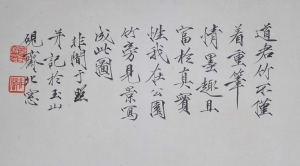 道君竹不僅
着重筆
情墨趣且
富於真實
性我在公園
竹旁見景寫
成此圖
非闇于照
并記於玉山
硯齋北窓